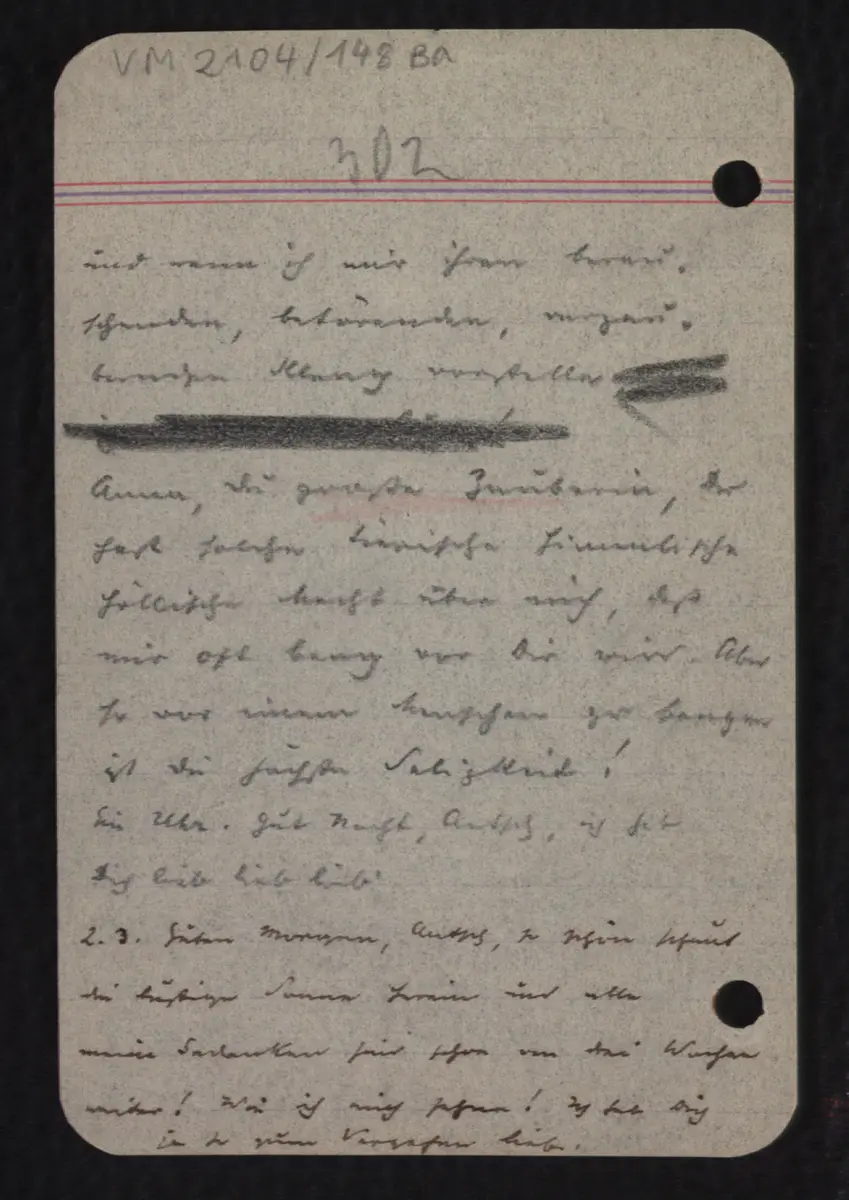 VM 2104/148 Ba
302
und wenn ich mir ihren berau-
schenden, betörenden, verzau-
bernden Klang vorstelle
Anna, Du große Zauberin, Du
hast solche tierische himmlische
höllische Macht über mich, daß
mir oft bang vor Dir wird. Aber
so vor einem Menschen zu bangen
ist die höchste Seligkeit!
Ein Uhr. Gut Nacht, Antsch, ich hab
Dich lieb lieb lieb!
2. 3. Guten Morgen, Antsch, so schön schaut
die lustige Sonne herein und alle
meine Gedanken sind schon um drei Wochen
weiter! Wie ich mich sehne! Ich hab Dich
ja so zum Vergehen lieb.